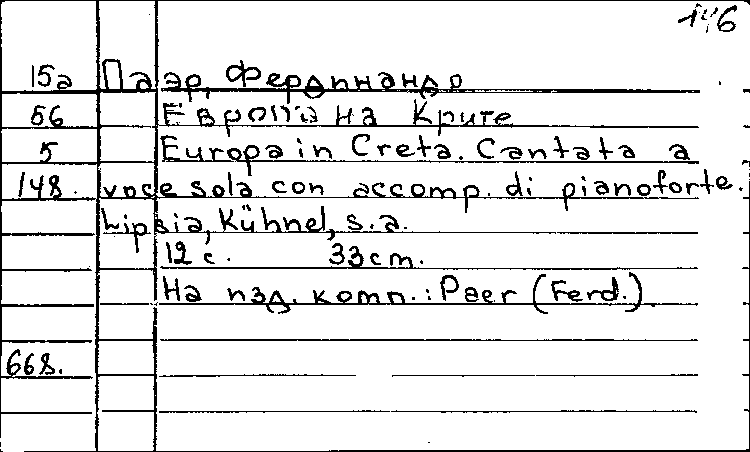 146
15а Паэр, Фердинандо
56 Европа на Крите
5 Europa in Creta. Cantata a
148. voce sola con accomp. di pianoforte.
Lipsia, Kühnel, s.a.
12 с. 33 cm.
На изд. комп.: Paer (Ferd.)
668.